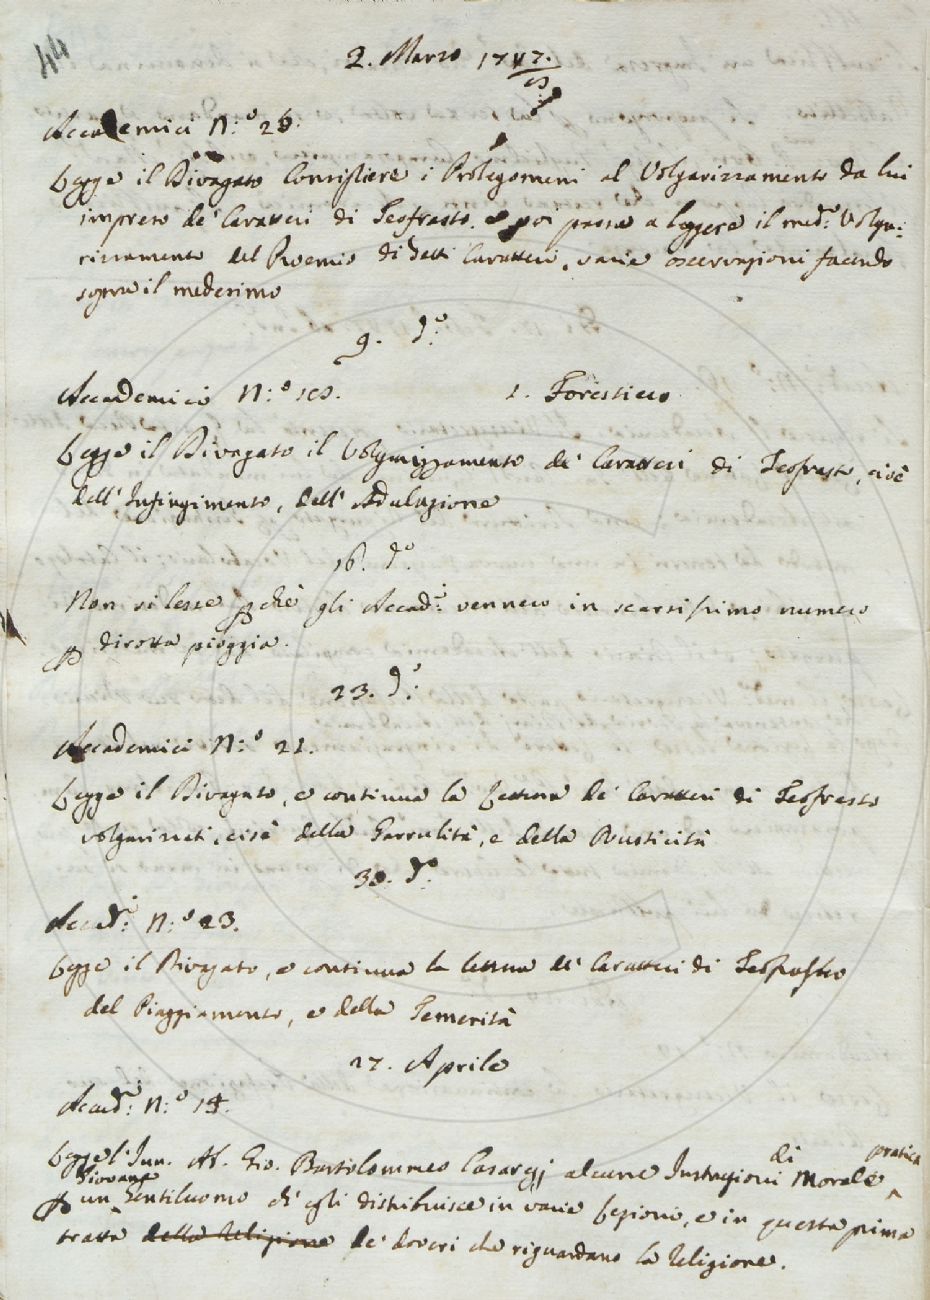 44
2. Marzo 1747.
Accademici N:º 26.
Legge il Divagato Consigliere i Prolegomeni al Volgarizzamento da lui
impreso de' Caratteri di Teofrasto. e poi passa a leggere il med:º Volga-
rizzamento del Proemio di detti Caratteri, varie osservazioni facendo
sopra il medesimo
9. dº:
Accademici N:º 20. 1. Forestiero
Legge il Divagato il Volgarizzamento de' Caratteri di Teofrasto, cioè
dell' Infingimento, dell' Adulazione
16. dº:
Non si lesse pchè gli Accad:i vennero in scarsissimo numero
p dirotta pioggia.
23. dº:
Accademici N:º 21.
Legge il Divagato, e continua la Lettura de' Caratteri di Teofrasto
volgarizzati, cioè della Garrulità, e della Rusticità
30. dº:
Accad:i N:º 23.
Legge il Divagato, e continua la lettura de' Caratteri di Teofrasto
del Piaggiamento, e della Temerità
27. Aprile
Accad:i N:º 14.
di pratica
Legge l' Inn. Ab. Gio. Bartolommeo Casaregj alcune Instruzioni Morale
Giovane
p un Gentiluomo ch' egli distribuisce in varie Lezioni, e in questa prima
tratta della Religione de' doveri che riguardano la Religione.